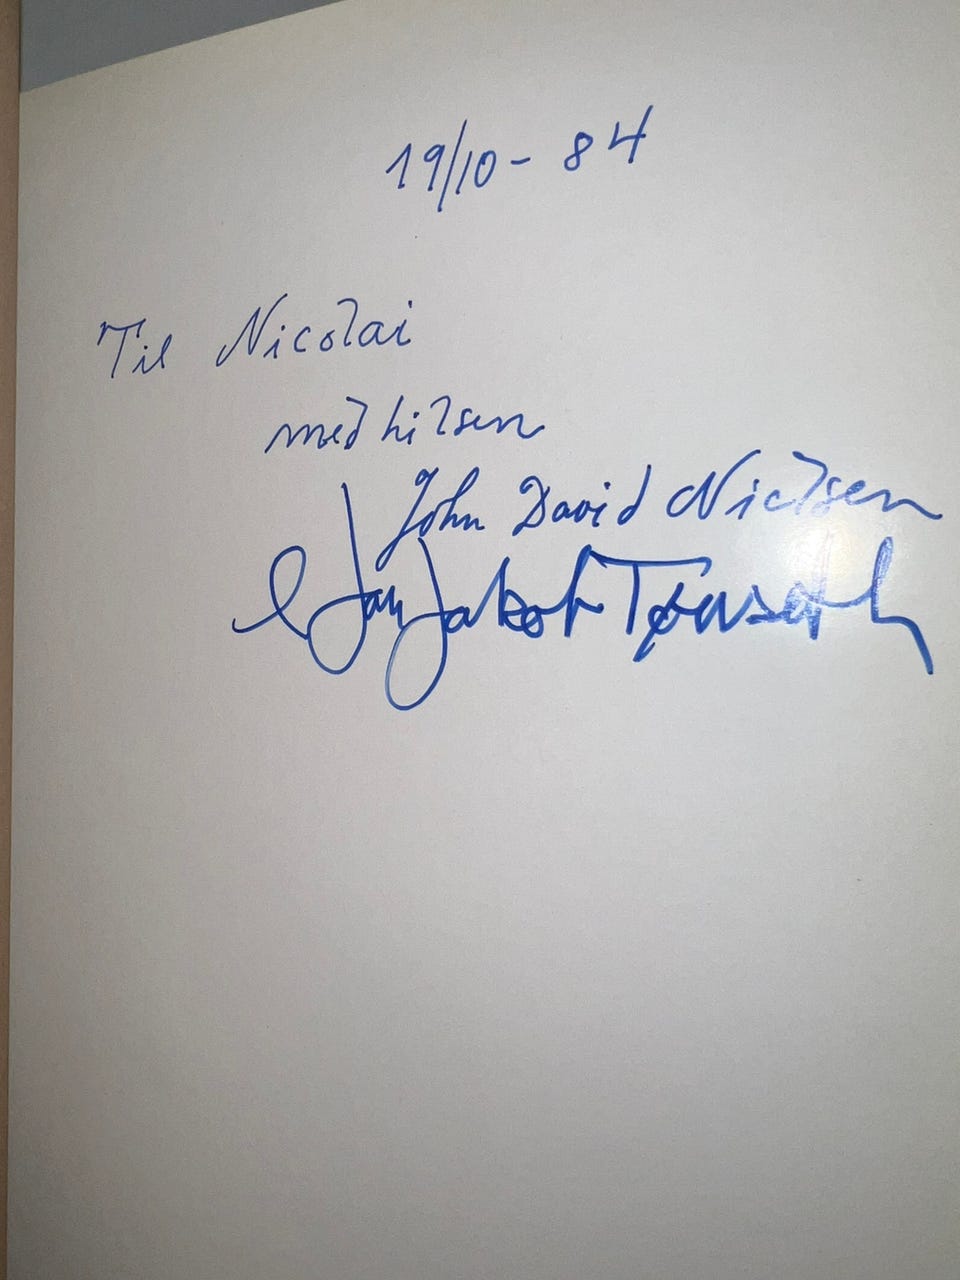 19/10 - 84
Til Nicolai
med hilsen
John David Nielsen
Jan Jakob Tønseth